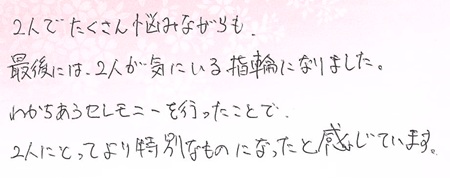 2人でたくさん悩みながらも、
最後には、2人が気にいる指輪になりました。
わかちあうセレモニーを行ったことで、
2人にとってより特別なものになったと感じています。